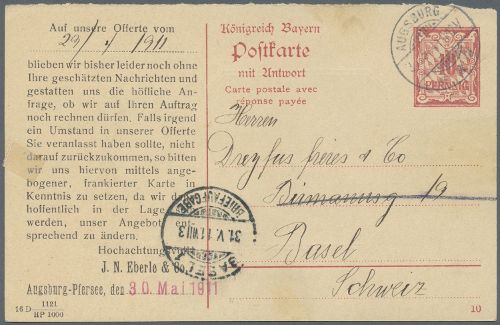 Auf unsere Offerte vom
1911
blieben wir bisher leider noch ohne
Ihre geschätzten Nachrichten und
gestatten uns die höfliche An-
frage, ob wir auf Ihren Auftrag
noch rechnen dürfen. Falls irgend
ein Umstand in unserer Offerte
Sie veranlasst haben sollte, nicht
darauf zurückzukommen, so bitten
wir uns hiervon mittels ange-
bogener, frankierter Karte in
Kenntnis zu setzen, da wir dann
hoffentlich in der Lage
werden, unser Angebot ent-
sprechend zu ändern.
Hochachtungsvoll
J. N. Eberle & Co.
Augsburg-Pfersee, den 30. Mai 1911
16 D 1121
KP 1000
Königreich Bayern
Postkarte
mit Antwort
Carte postale avec
réponse payée
AUGSBURG
PFENNIG
Herren
Dreyfus frères & Co
19
Basel
Schweiz
BRIEFAUFGABE
31.V.11
BASEL
10